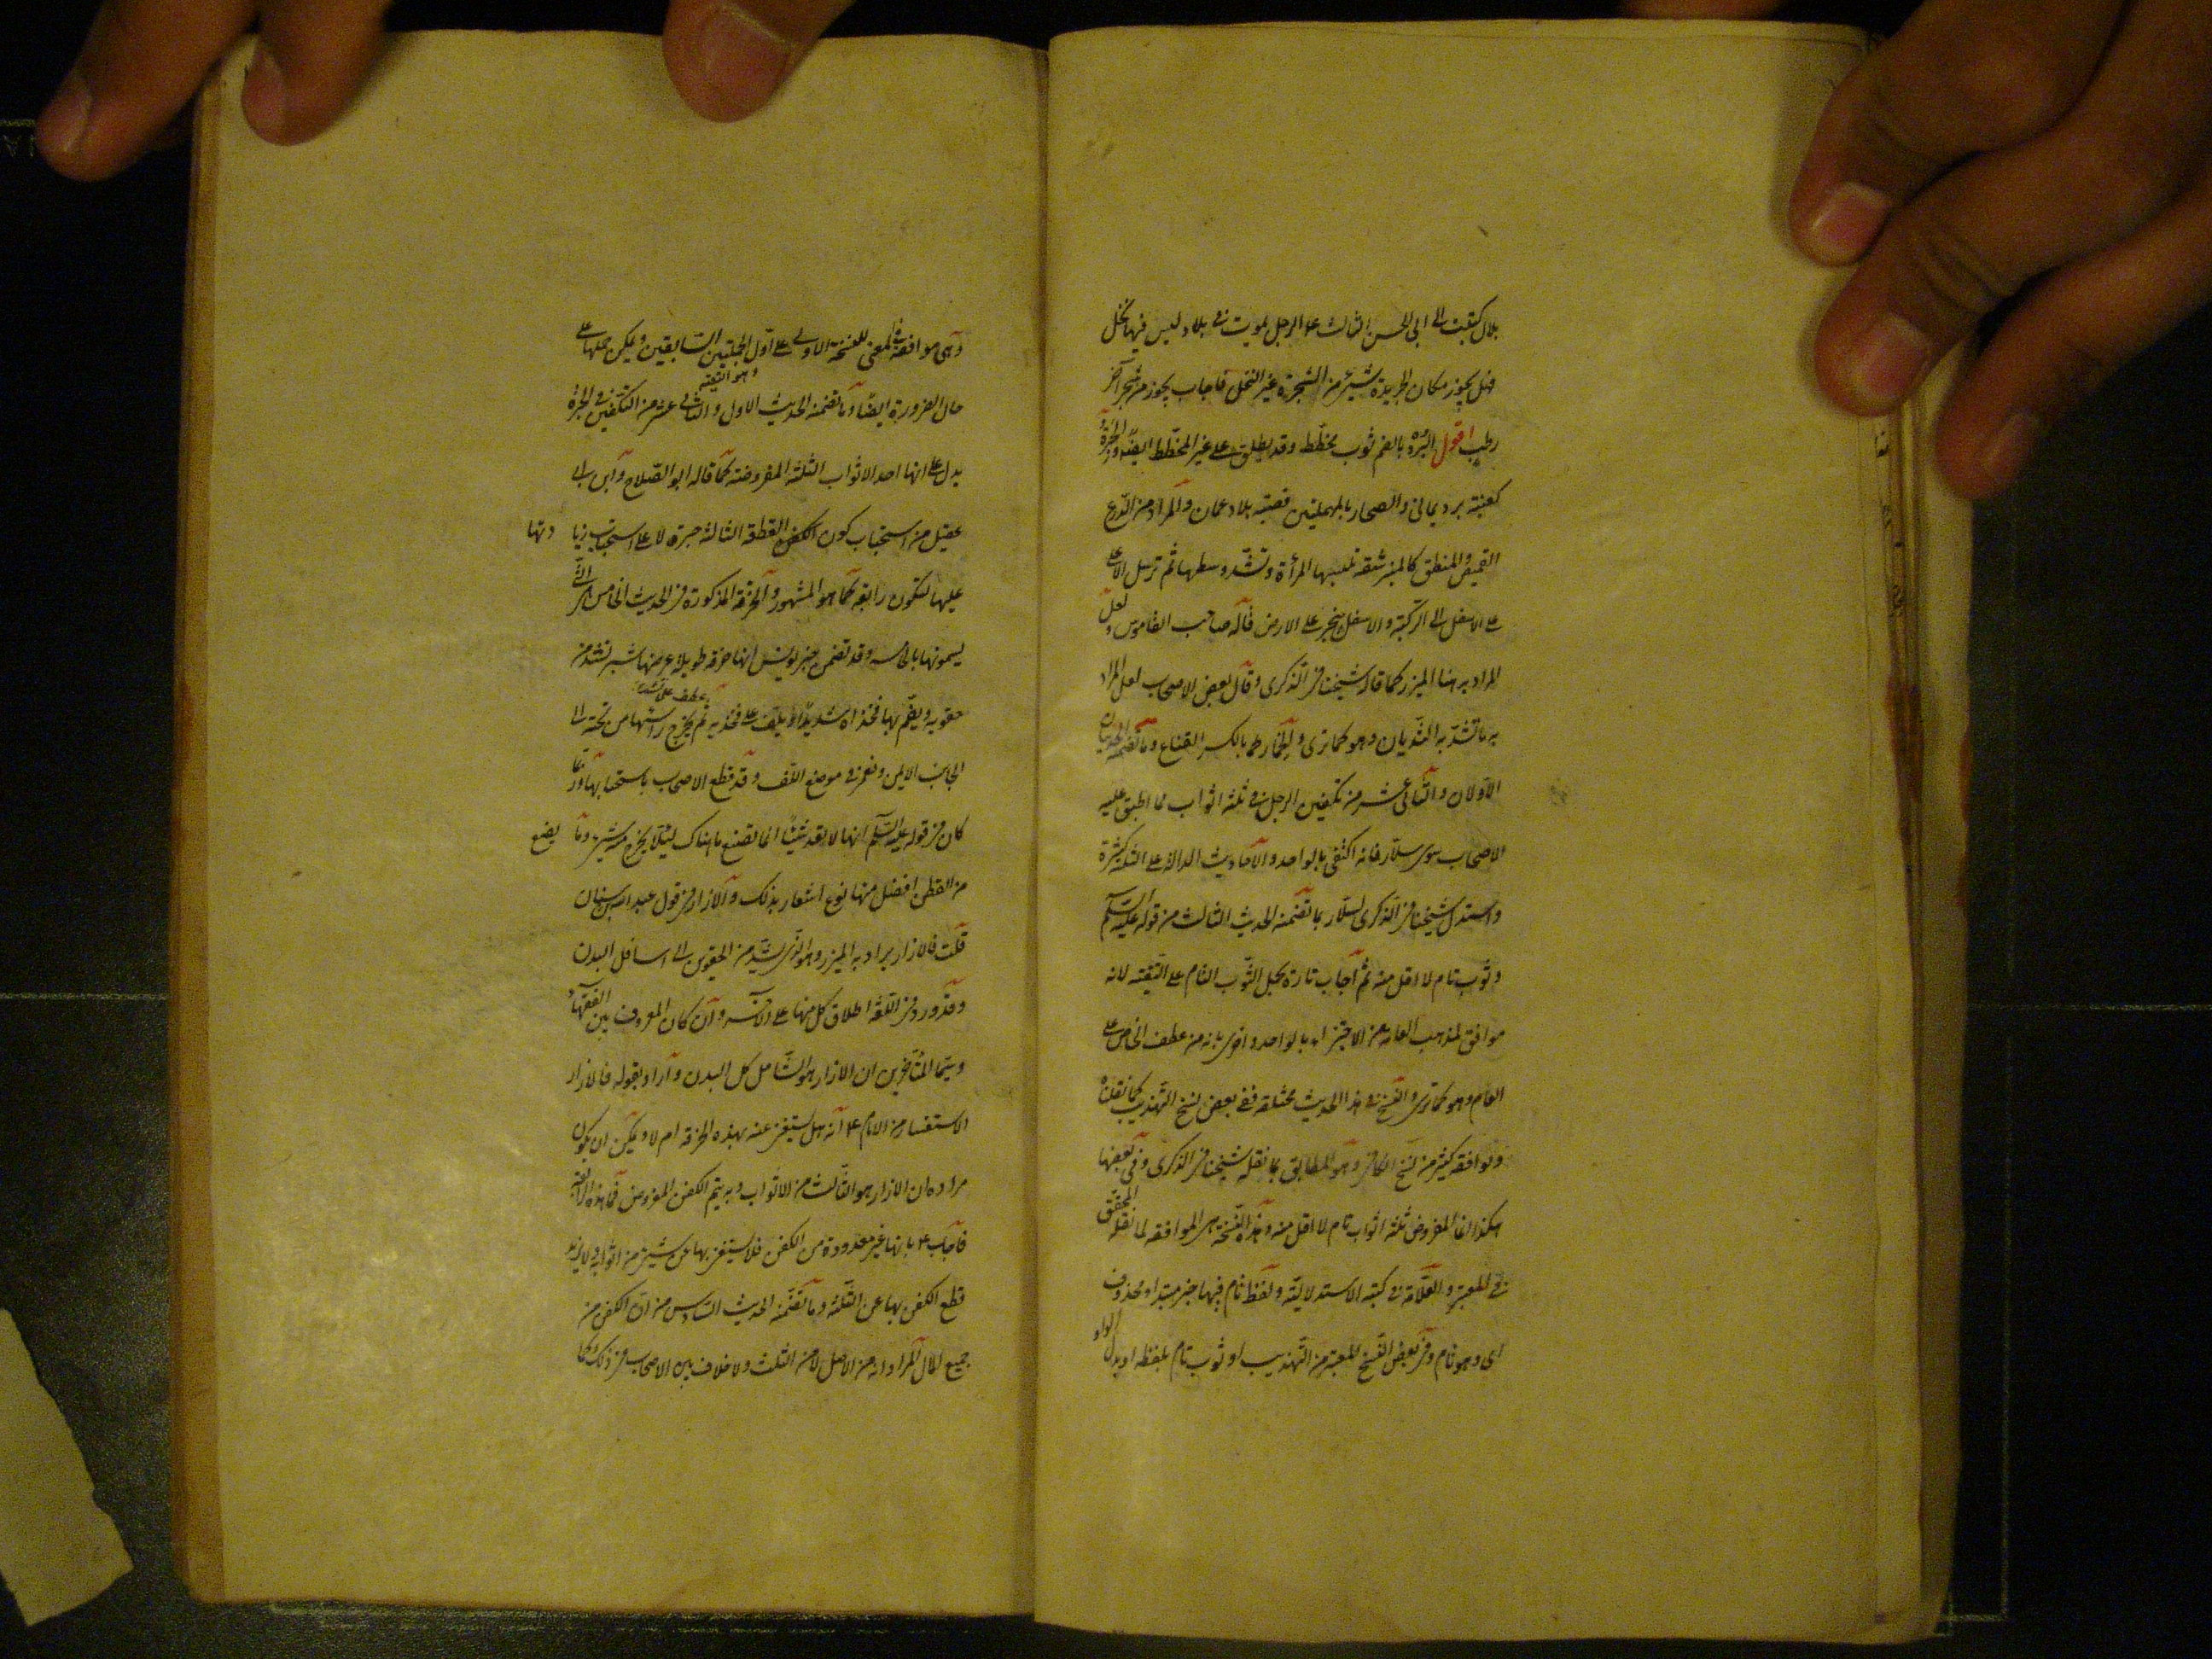 بلال كتبت الى ابى الحسن الثالث ع الرجل يموت فى بلاد ليس فيها نخل
فهل يجوز مكان الجريدة شىء من الشجرة غير النخل فاجاب يجوز من شجر آخر
رطب اقول البردة بالضم ثوب مخطط وقد يطلق على غير المخطط ايضا والحبرة
كعنبة برد يمانى والصحار بالمهملتين قصبة بلاد عمان والمراد من الدرع
القميص والمنطق كالمنبر شقة تلبسها المرأة وتشد وسطها ثم ترسل الاعلى
على الاسفل الى الركبة والاسفل ينجر على الارض قاله صاحب القاموس ولعل
المراد به هنا الميزر كما قاله شيخنا فى الذكرى وقال بعض الاصحاب لعل المراد
به ما تشد به الثديان وهو كما ترى والخمار بالكسر القناع وما تضمنه الحديثان
الاولان والثانى عشر من تكفين الرجل فى ثلثة اثواب مما اطبق عليه
الاصحاب سوى سلار فانه اكتفى بالواحد والاحاديث الدالة على الثلثة كثيرة
واستدل شيخنا فى الذكرى لسلار بما تضمنه الحديث الثالث من قوله عليه السلم
وثوب تام لا اقل منه ثم اجاب تارة بحمل الثوب التام على التقية لانه
موافق لمذهب العامة من الاجتزاء بالواحد واخرى بانه من عطف الخاص على
العام وهو كما ترى والنسخ فى هذا الحديث مختلفة ففى بعض نسخ التهذيب كما نقلناه
ويوافقه كثير من نسخ الكافى وهو المطابق بما نقله شيخنا فى الذكرى وفى بعضها
هكذا انما المفروض ثلثة اثواب تام لا اقل منه وهذه النسخة هى الموافقة لما نقله المحقق
فى المعتبر والعلامة فى كتبه الاستدلالية ولفظ تام فيها خبر مبتدا محذوف
اى وهو تام وفى بعض النسخ المعتبرة من التهذيب او ثوب تام بلفظة او بدل الواو
وهى موافقة فى المعنى للنسخة الاولى على اول الحملين السابقين ويمكن حملها على
وهو التقية
حال الضرورة ايضا وما تضمنه الحديث الاول والثانى عشر من التكفين فى الحبرة
يدل على انها احد الاثواب الثلثة المفروضة كما قاله ابو الصلاح وابن ابى
عقيل من استحباب كون القطعة الثالثة حبرة لا على استحباب زيا دتها
عليها لتكون رابعة كما هو المشهور والخرقة المذكورة فى الحديث الخامس هى التى
يسمونها بالخامسة وقد تضمن خبر يونس انها خرقة طويلة عرضها شبر تشد من
عطف على تشد
حقويه ويضم بها فخذاه شديدا ويلف على فخذيه ثم يخرج راسها من تحته الى
الجانب الايمن وتغمز فى موضع اللف وقد قطع الاصحاب باستحبابها وربما
كان فى قوله عليه السلم انها لا تعد شيئا انما تصنع ما هناك لئلا يخرج منه شىء وما يصنع
من القطن افضل منها نوع اشعار بذلك والازار فى قول عبد الله بن سنان
قلت فالازار يراد به الميزر وهو الذى يشد من الحقوين الى اسافل البدن
وقد ورد فى اللغة اطلاق كل منها على الآخر وان كان المعروف بين الفقهاء
وسيما المتأخرين ان الازار هو الشامل كل البدن واراد بقوله فالازار
الاستفسار من الامام ع انه هل يستغنى عنه بهذه الخرقة ام لا ويمكن ان يكون
مراده ان الازار هو الثالث من الاثواب وبه يتم الكفن المفروض فما هذه الرابعة
فاجاب ع بانها غير معدودة من الكفن فلا يستغنى بها عن شىء من اثوابه ولا يزيد
قطع الكفن بها عن الثلثة وما تضمنه الحديث السادس من ان الكفن من
جميع المال المراد انه من الاصل لا من الثلث ولا خلاف بين الاصحاب فى ذلك وكما